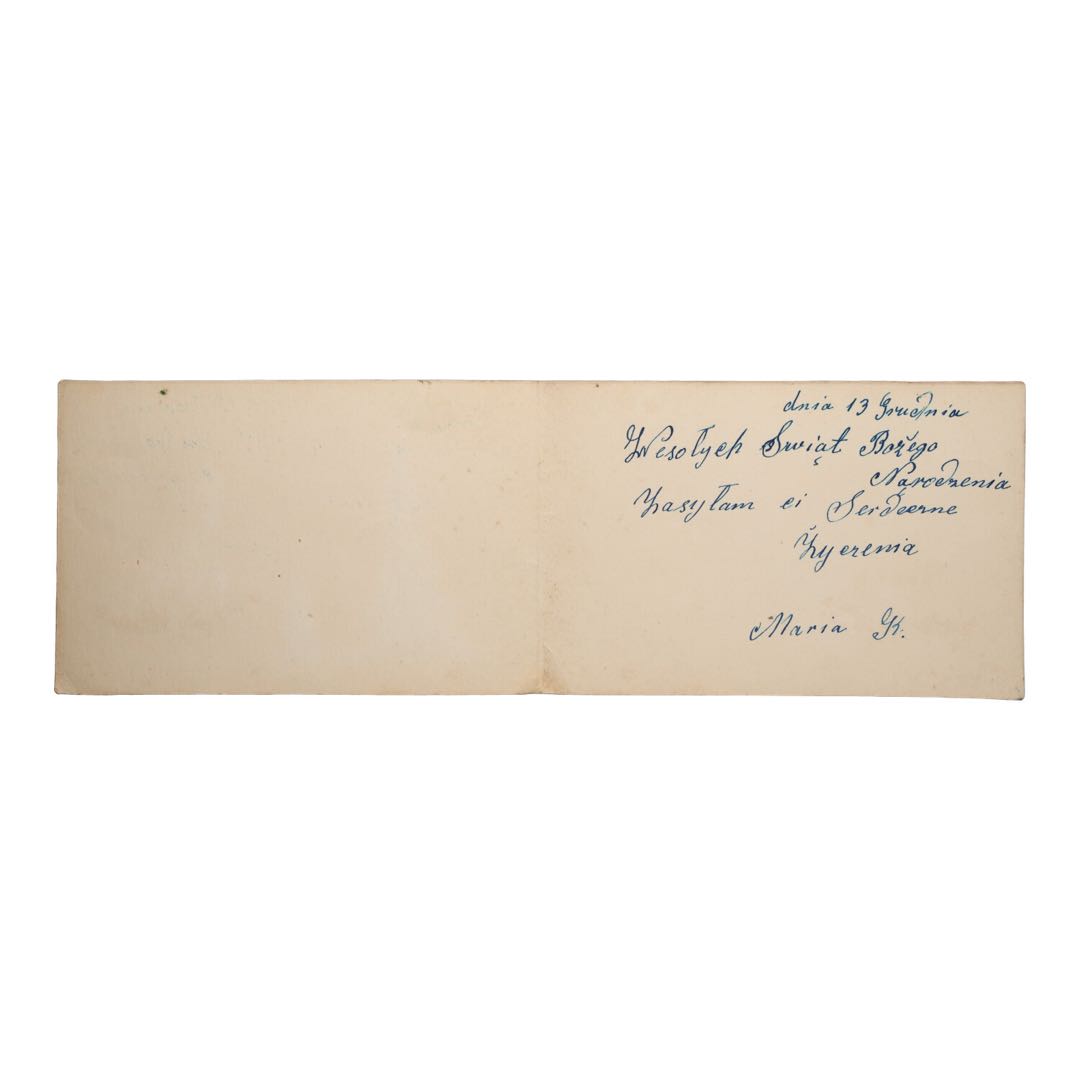 dnia 13 Grudnia
Wesołych Swiąt Bożego
Narodzenia
Zasyłam ci Serdeczne
Życzenia
Maria K.